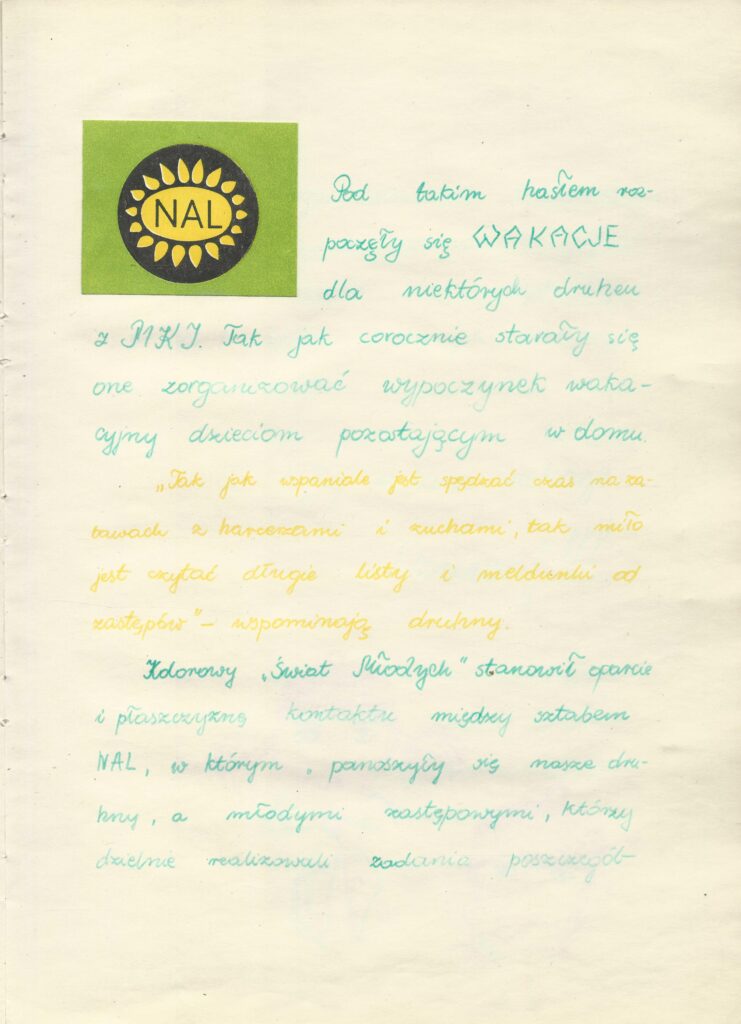 NAL
Pod takim hasłem roz-
poczęły się WAKACJE
dla niektórych druhen
z MKI. Tak jak corocznie starały się
one zorganizować wypoczynek waka-
cyjny dzieciom pozostającym w domu.
„Tak jak wspaniale jest spędzać czas na za-
bawach z harcerzami i zuchami, tak miło
jest czytać długie listy i meldunki od
zastępów" – wspominają druhny.
Kolorowy „Świat Młodych" stanowił oparcie
i płaszczyznę kontaktu między sztabem
NAL, w którym „panoszyły się nasze dru-
hny, a młodymi zastępowymi, którzy
dzielnie realizowali zadania poszczegól-